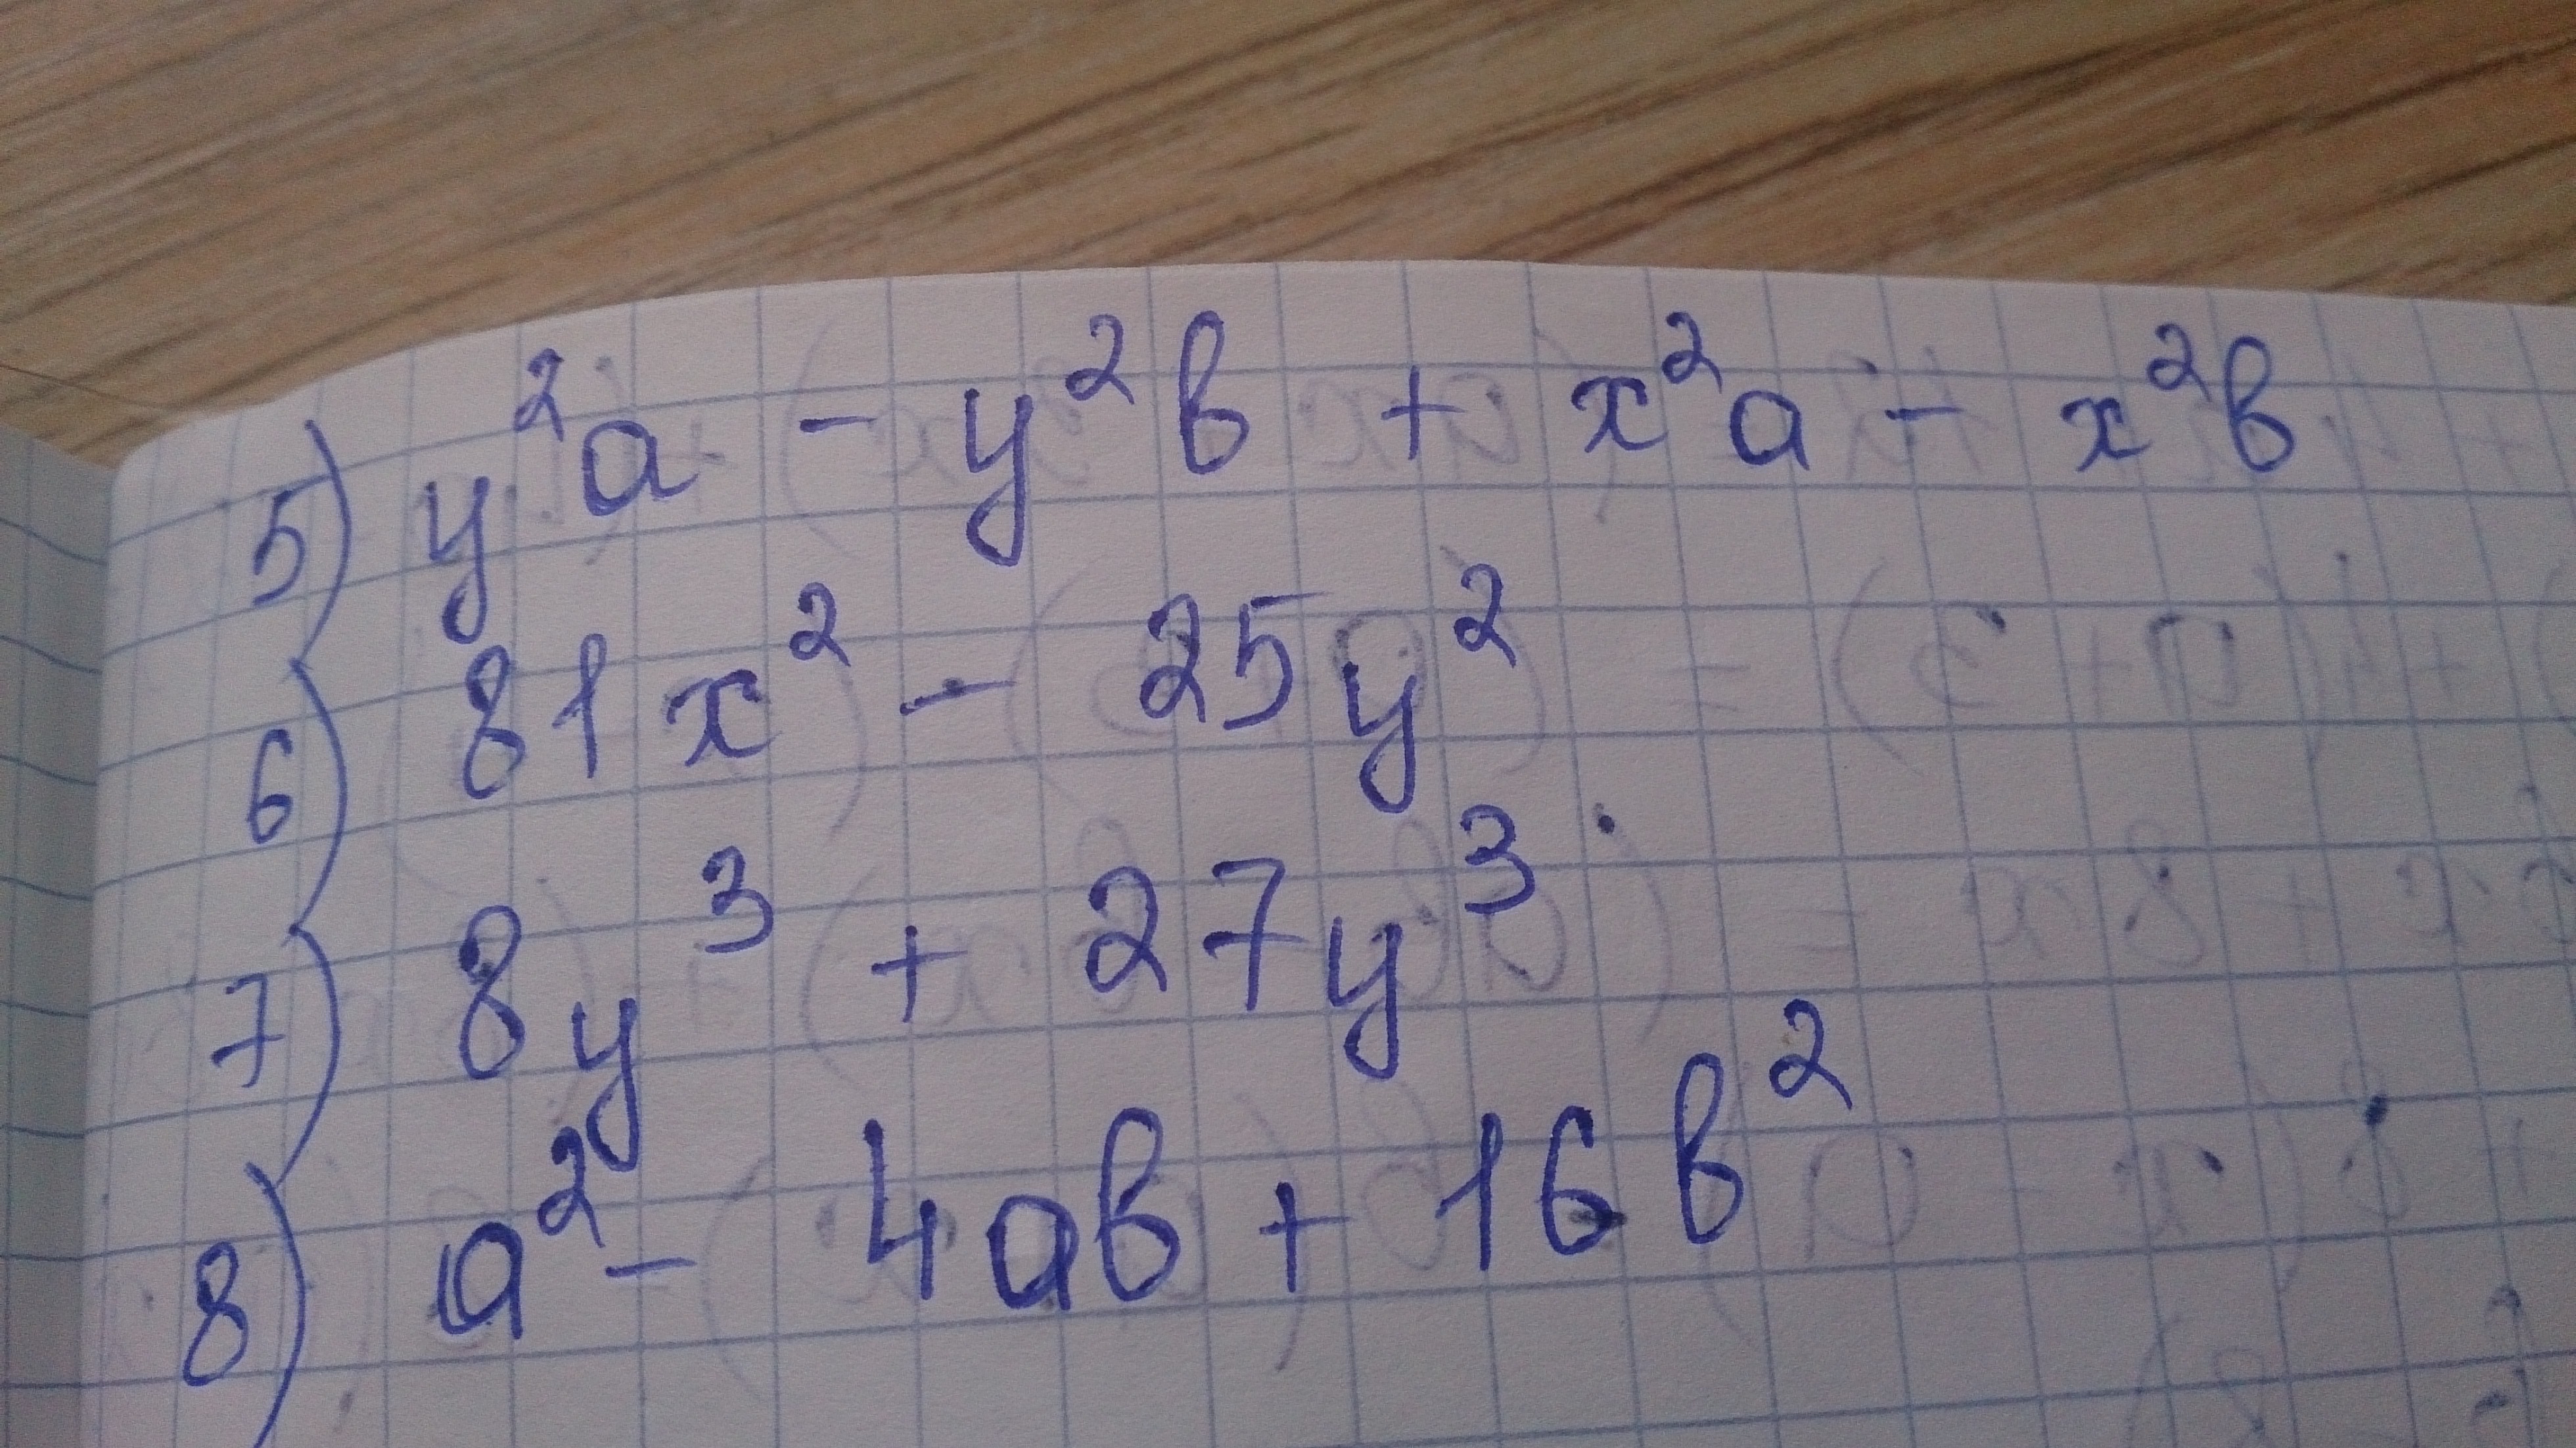 5) y²a - y²b + x²a - x²b
6) 81x² - 25y²
7) 8y³ + 27y³
8) a² - 4ab + 16b²